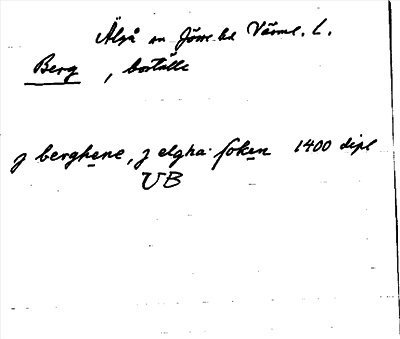 Älgå sn Jösse hd Värml. l.
Berg , boställe
j berghene, j elgha soken 1400 dipl
VB